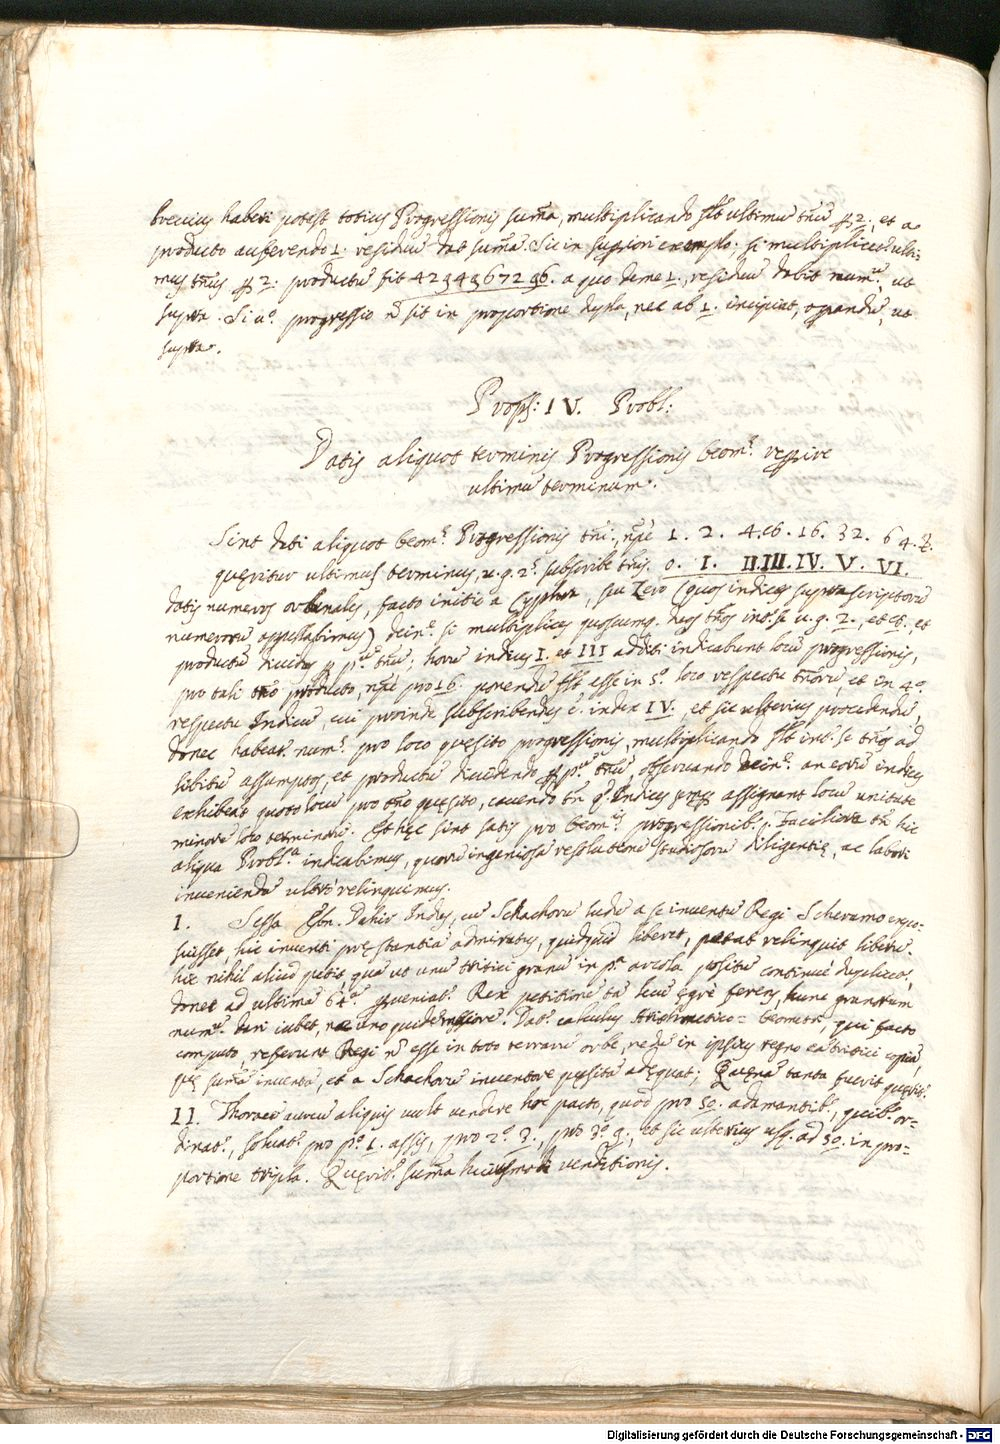 brevius haberi potest totius Progressionis suma, multiplicando slt ultimu tnu p 2; et a
producto auferendo 1. residuu dat suma. Sic in supiori exemplo. si multiplices ulti-
mus tnus p 2. productu fit 4294967296. a quo deme 1, residuu dabit num, ut
supra. Si u progressio n sit in proportione dupla, nec ab 1. incipiat, opandu, ut
supra.
Props: IV. Probl:
Datis aliquot terminis Progressionis Geom reppire
ultimu terminum.
Sint dati aliquot Geom Progressionis tni, npe 1. 2. 4. 8. 16. 32. 64. &.
quęritur ultimus terminus, u.g. subscribe tnis. 0. I. II. III. IV. V. VI.
datis numeros ordinales, facto initio a Cyphra, seu Zero (quos indices suprascriptoru
numeroru appellabimus) dein si multiplices quoscumq. duos tnos int. se u.g. 2., et 8., et
productu dividas p pu tnu; horu indices I. et III additi indicabunt locu progressionis,
pro tali tno producto, npe pro 16. ponendu slt esse in 5o loco respectu tnoru, et in 4o
respectu Indicu, cui proinde subscribendus e. index IV., et sic ulterius procedendu,
donec habeat num pro loco quęsito progressionis, multiplicando slt int. se tnos ad
libitu assumptos, et productu dividendo p pu tnu, observando dein an eoru indices
exhibeat quoto locu pro tno quęsito, cavendo tn q Indices semp assignant locu unitate
minore loco terminoru. Et hęc sint satis pro Geom progressionib. Faciliora tn hic
aliqua Probl. indicabimus, quoru ingeniosa resolutione studiosoru diligentię, ac labori
inveniendu ultro relinquimus.
I. Sessa Ebn. Dahir Indus, cu Schachoru ludu a se inventu Regi Scheramo expo-
suisset, hic inventi pręstantia admiratus, quidquid liberet, petat relinquit liberu.
hic nihil aliud petit, qua ut unu tritici granu in pa areola positu continue duplicos,
donec ad ultima 64a pveniat. Rex petitione ta leve ęgre ferens, hunc granorum
num dari iubet, nec uno quidem Dat calculus Arithmetico-Geometr, qui facto
computo, referunt Regi n esse in toto terraru orbe, nedu in ipsius regno ea tritici copia,
quę suma inventa, et a Schachoru inventore quęsita adęquat; Quęna tanta fuerit quęrit.
II. Thorace aureu aliquis vult vendere hoc pacto, quod pro 30. adamantib, quib. or-
dinat., solvat. pro po 1. assis, pro 2o 3., pro 3o 9., et sic ulterius usq. ad 30. in pro-
portione tripla. Quęrit. suma huiusmodi venditionis.
Digitalisierung gefördert durch die Deutsche Forschungsgemeinschaft - DFG